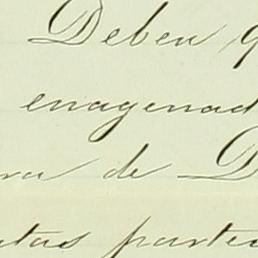 Deben q
enagenad
ra de D
tas parte